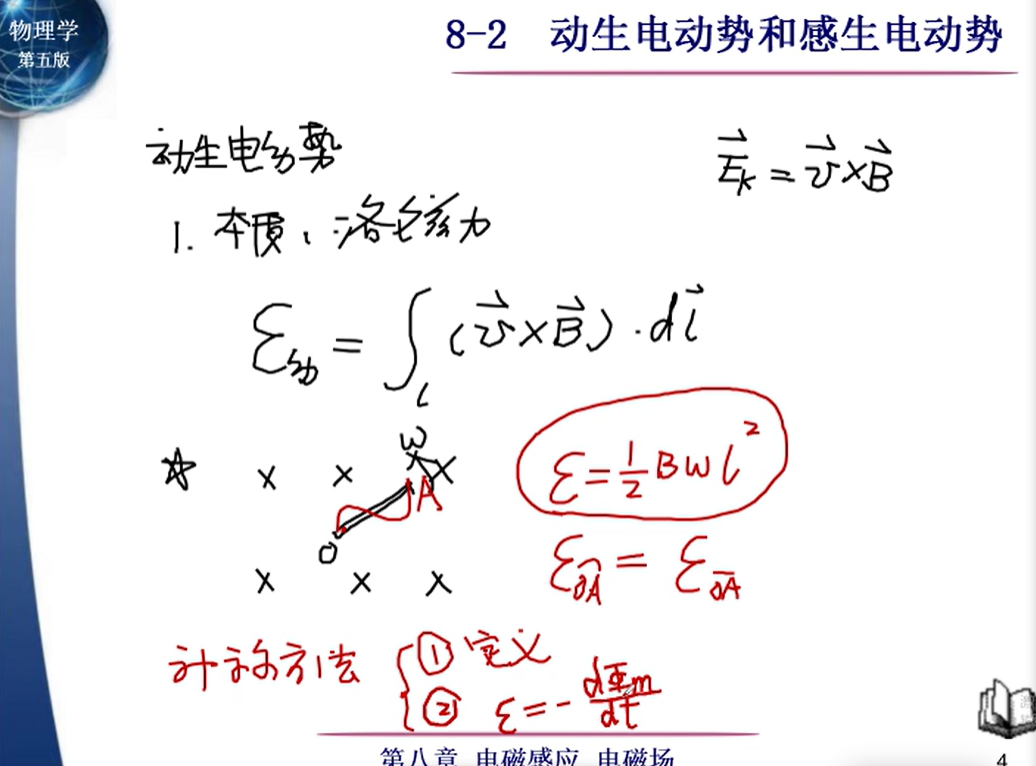 物理学
第五版
8-2 动生电动势和感生电动势
动生电动势
E⃗k = v⃗×B⃗
1. 本质、洛仑兹力
ε动 = ∫L (v⃗×B⃗)·dl⃗
ω
☆ × × ×
A
ε=1/2 Bωl²
O
× × ×
ε⌒OA = ε‾OA
计算方法 { ① 定义
② ε=-dΦm/dt
第八章 电磁感应 电磁场
4